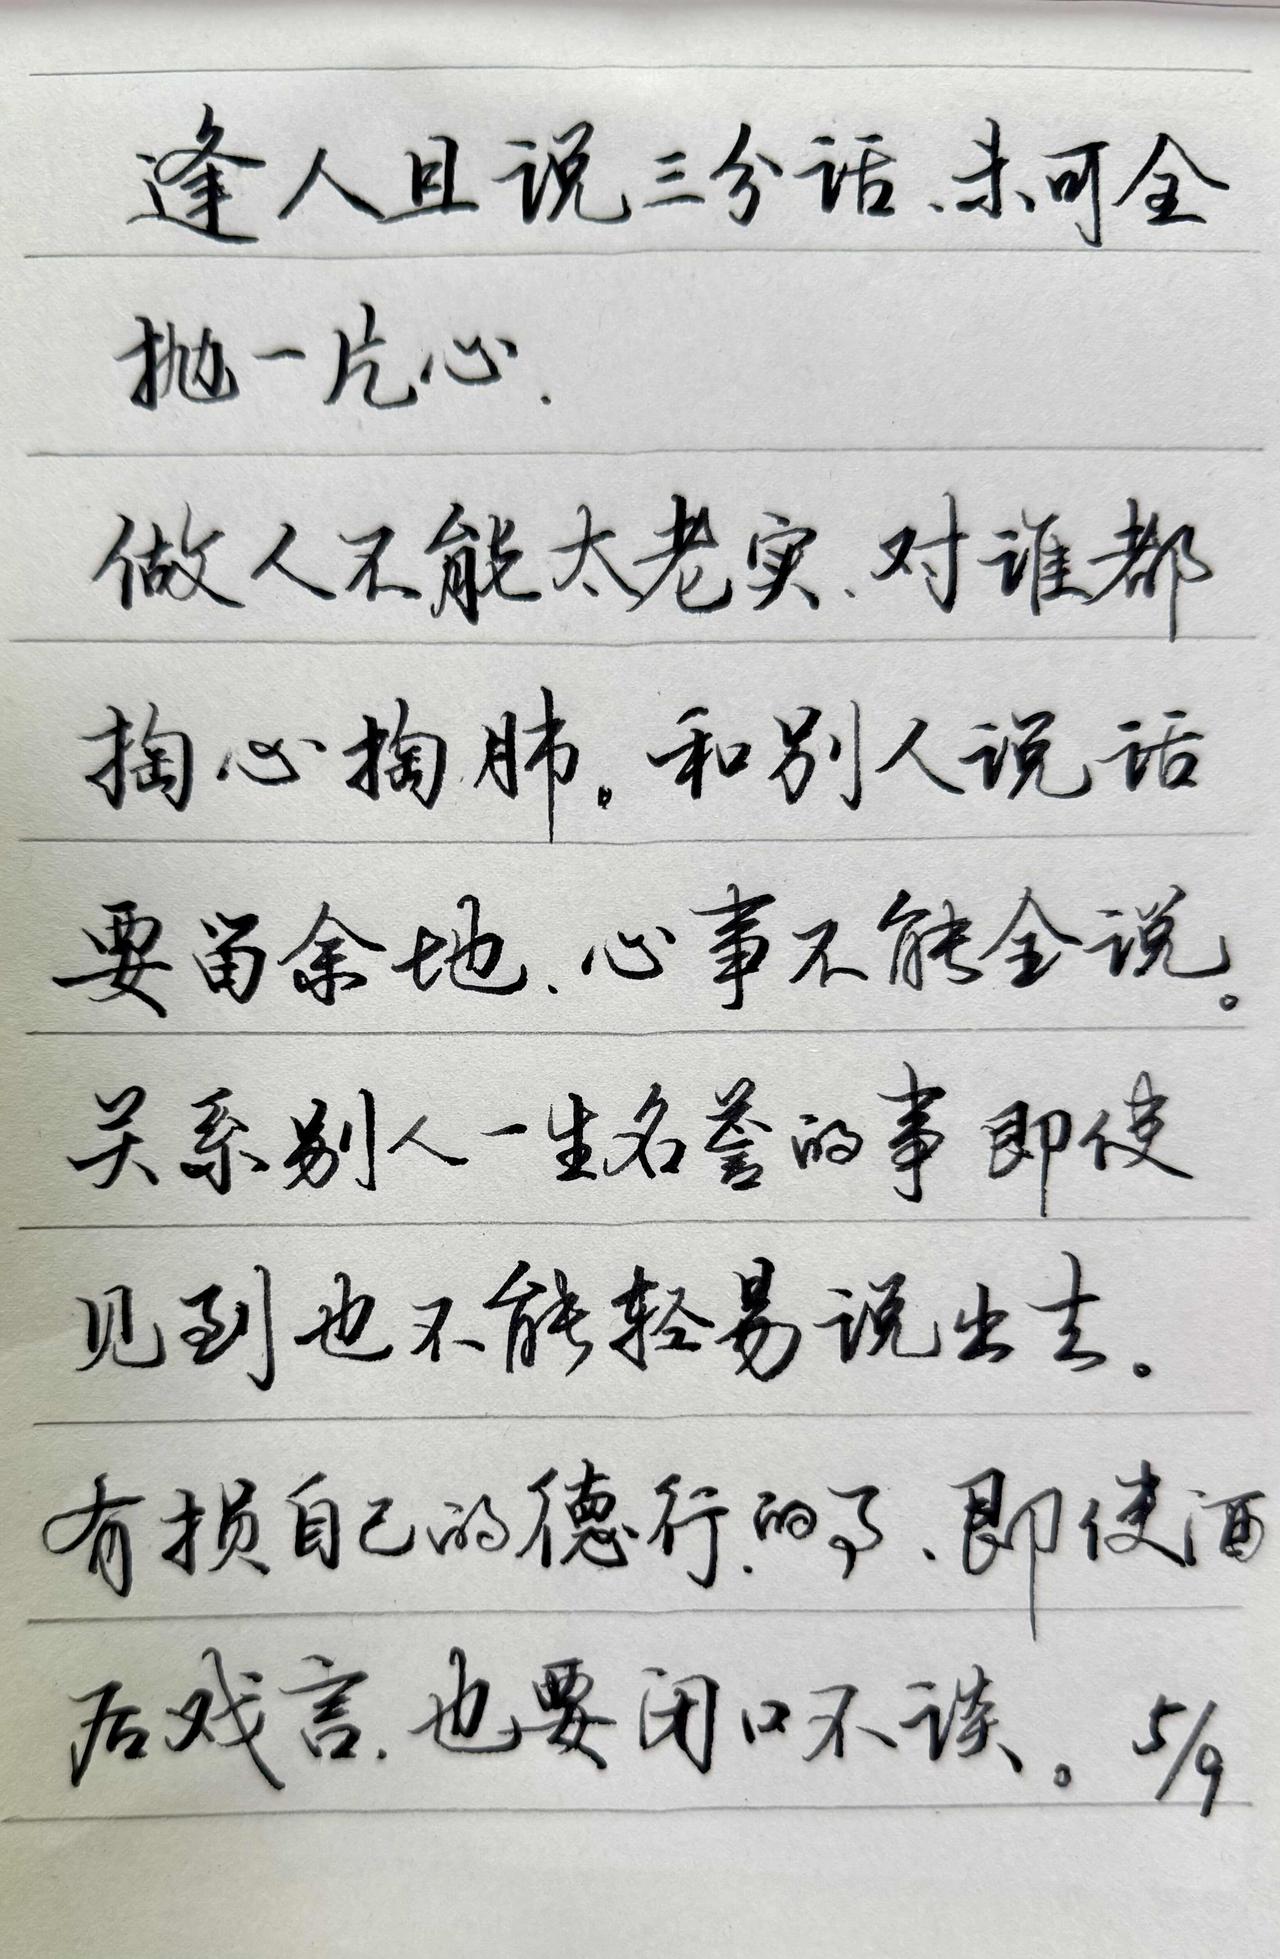 逢人且说三分话、未可全
抛一片心.
做人不能太老实、对谁都
掏心掏肺。和别人说话
要留余地、心事不能全说。
关系别人一生名誉的事 即使
见到也不能轻易说出去。
有损自己的德行、的事、即使酒
后戏言、也要闭口不谈。 5/9